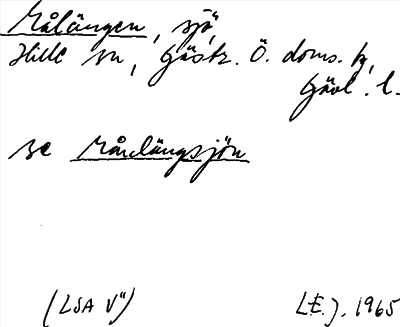 Målängen, sjö,
Hille sn, Gästr. Ö. doms. h,
Gävl. l.
se Mårdängsjön
(LSA V")
1965